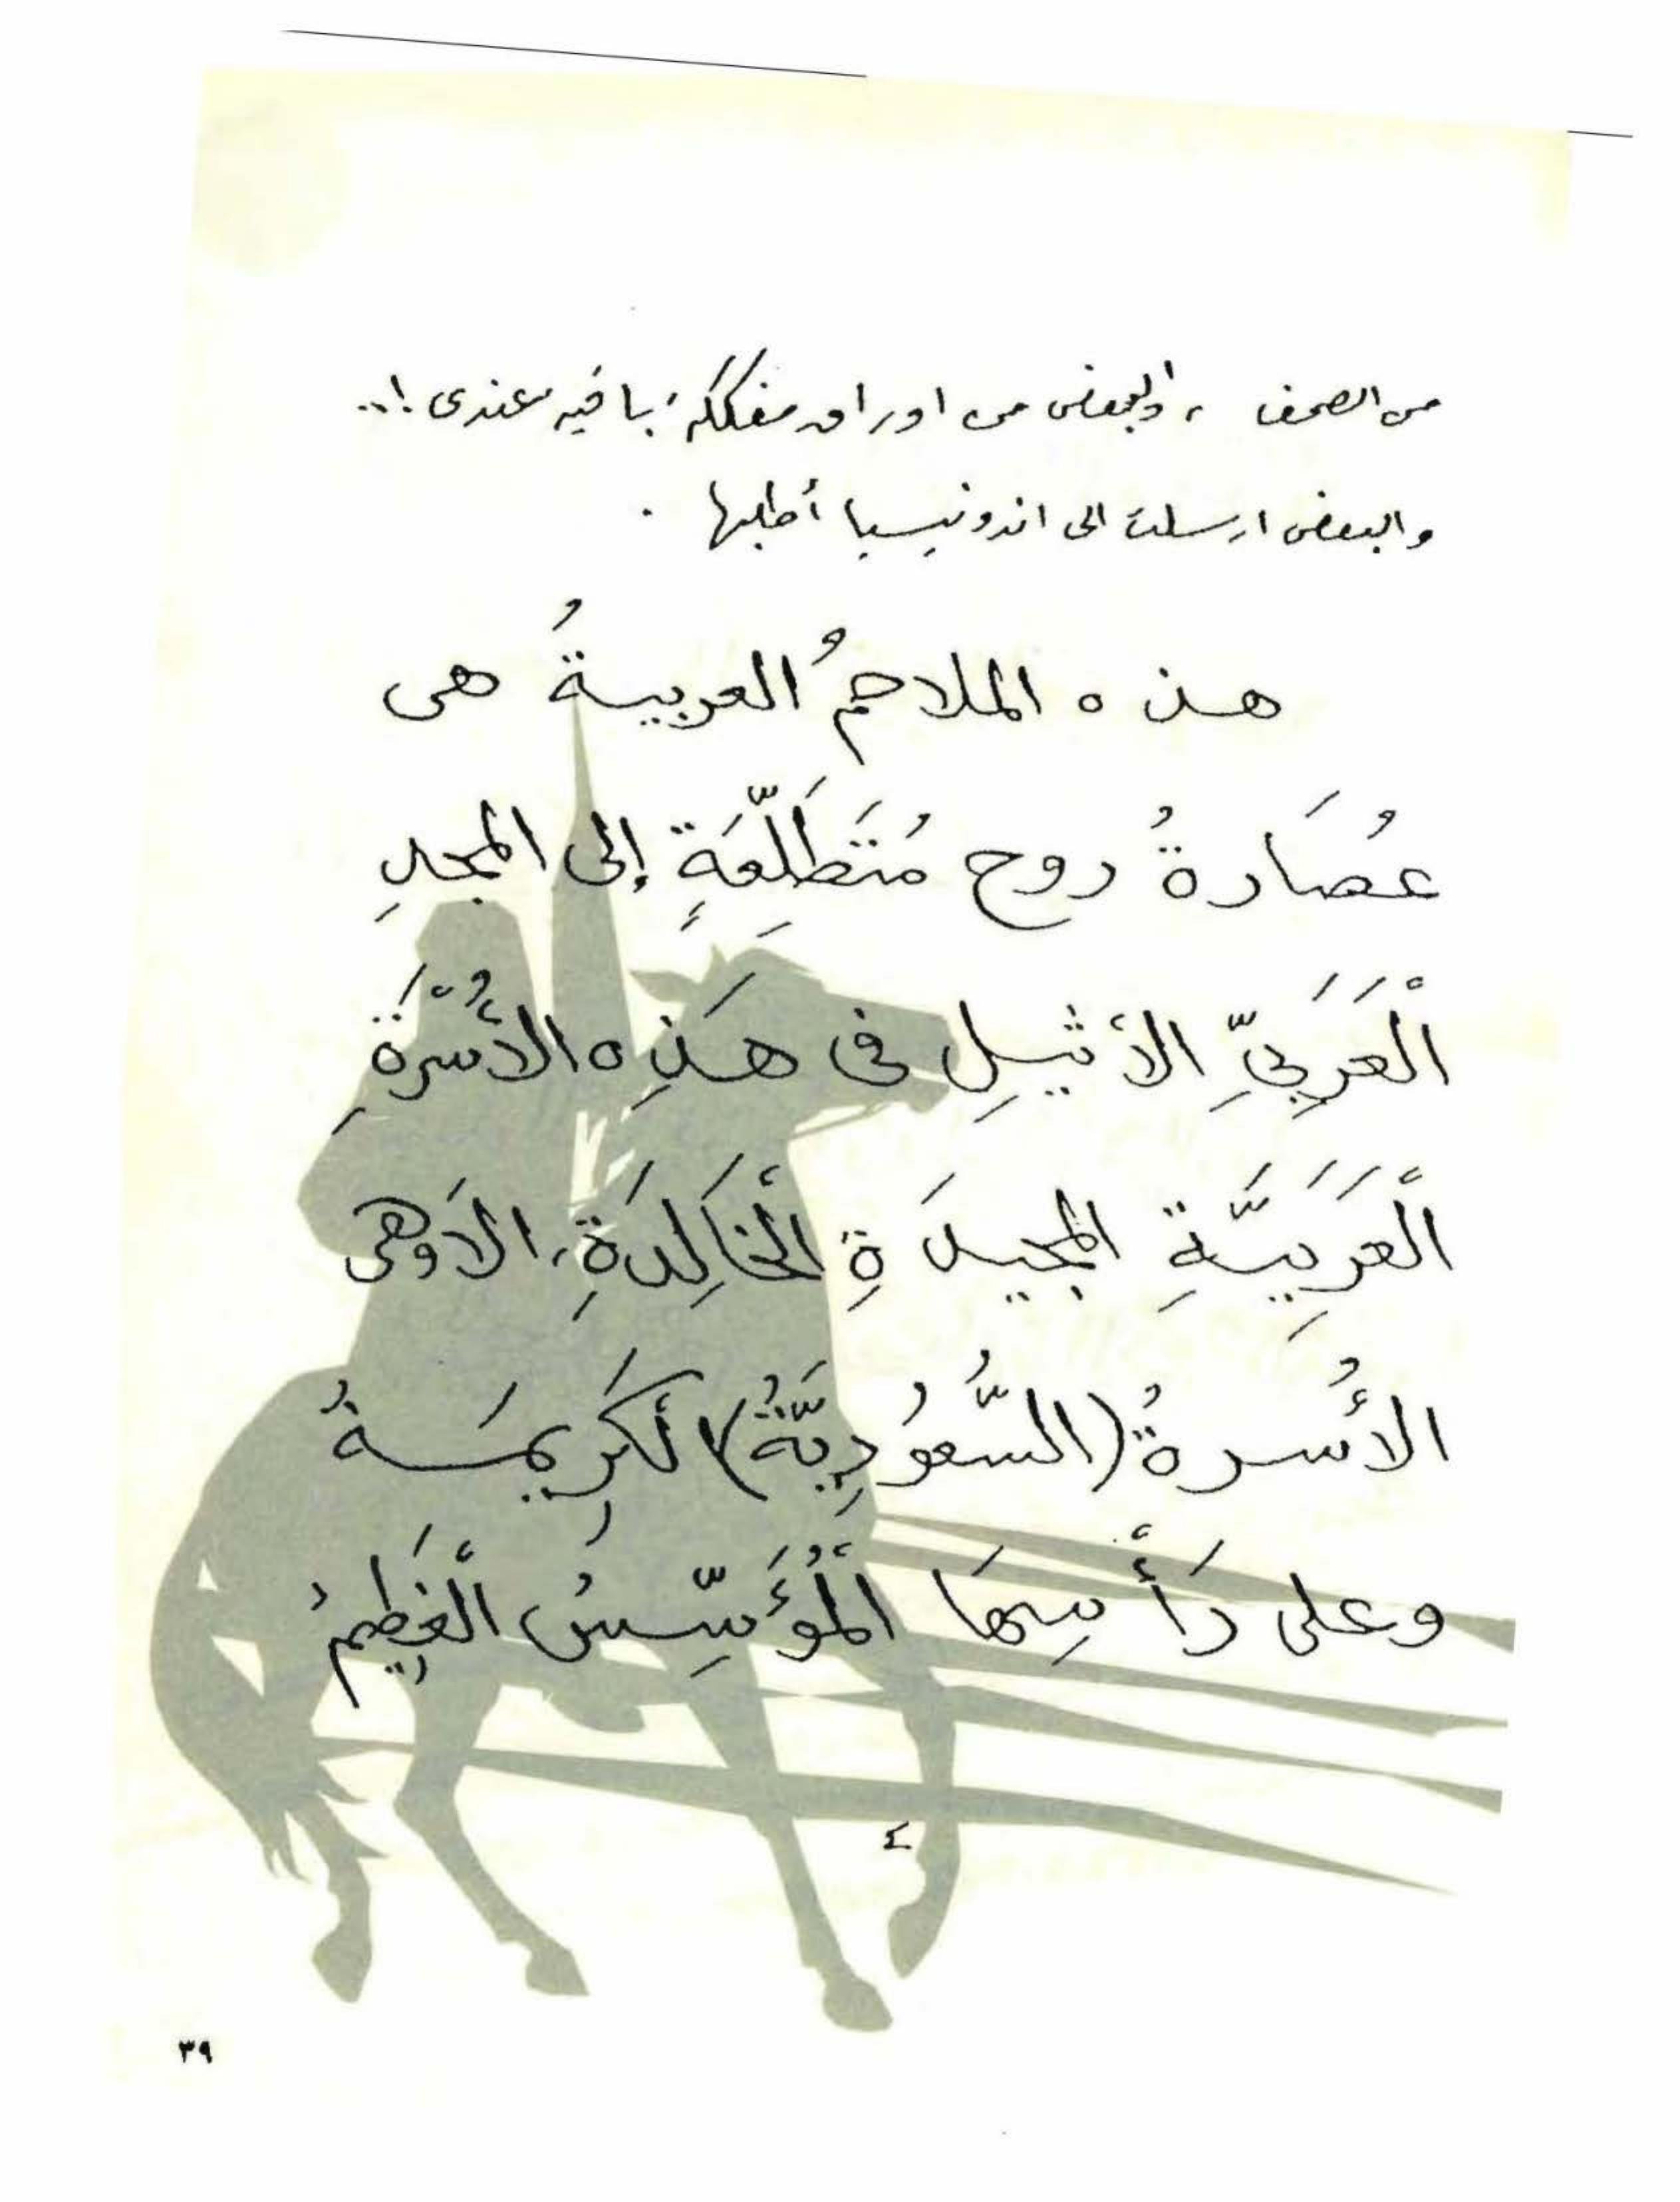 من الصحف ، والبعض من اوراق مفككة باقيه عندى !..
والبعض ارسلت الى اندونيسيا أطلبها .
هذه الملاحمُ العربيةُ هى
عُصَارةُ روح مُتَطَلِّعَةٍ إلى المجدِ
الْعَرَبِىِّ الأثيلِ فى هَذِه الأُسْرَةِ
الْعَرَبِيَّةِ المجيدَةِ الْخَالِدَةِ، الاَ وهى
الأُسرةُ (السَّعُودِيَّةُ) الْكَرِيمَةُ
وعلى رَأْسِهَا الْمُؤَسِّسُ الْعَظِيمُ
٤
٣٩